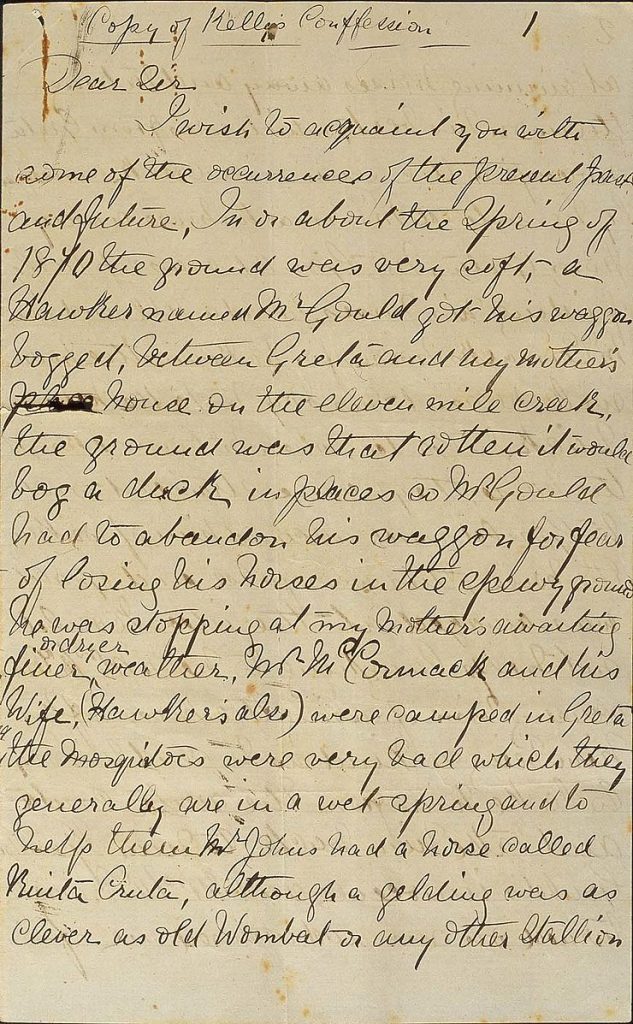 Copy of Kelly's Conffession 1
Dear Sir
I wish to acquaint you with
some of the occurrences of the present past
and future, In or about the Spring of
1870 the ground was very soft, a
Hawker named Mr Gould got his waggon
bogged, between Greta and my mother's
house on the eleven mile creek,
the ground was that rotten it would
bog a duck in places so Mr Gould
had to abandon his waggon for fear
of losing his horses in the spewy ground
he was stopping at my Mother's awaiting
finer or dryer weather, Mr McCormack and his
Wife, (Hawkers also) were camped in Greta
the Mosquitoes were very bad which they
generally are in a wet spring and to
help them Mr Johns had a horse called
Ruita Cruta, although a gelding was as
clever as old Wombat or any other Stallion